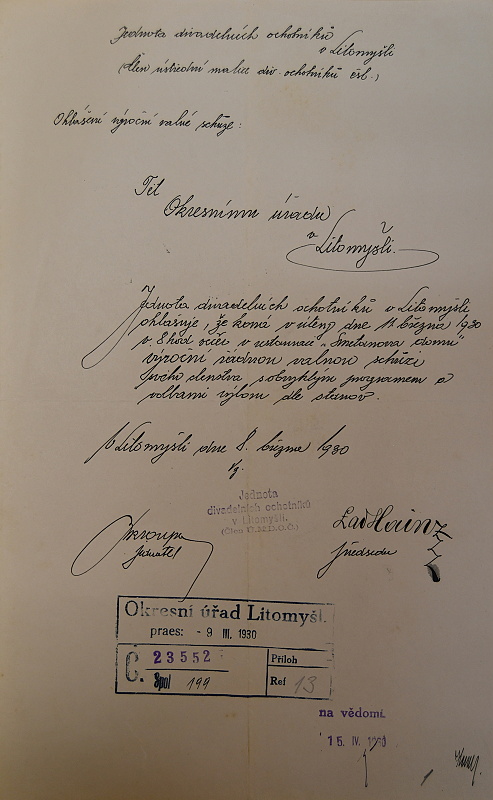 Jednota divadelních ochotníků
v Litomyšli
(Člen ústřední matice div. ochotníků čsl.)
Ohlášení výroční valné schůze:
Okresnímu úřadu
v
Litomyšli.
Jednota divadelních ochotníků v Litomyšli
ohlašuje, že koná v úterý dne března 1930
v 8 hod. večer v restauraci "Smetanova domu"
výroční řádnou valnou schůzi
svého členstva s obvyklým programem a
volbami výboru dle stanov.
V Litomyšli dne 8. března 1930
Jednota
divadelních ochotníků
v Litomyšli.
jednatel
Lad Hainz
předseda
Okresní úřad Litomyšl.
praes: - 9 III. 1930
Č. 23552
Spol 199
Příloh
Ref 13
na vědomí.
15. IV. 1930